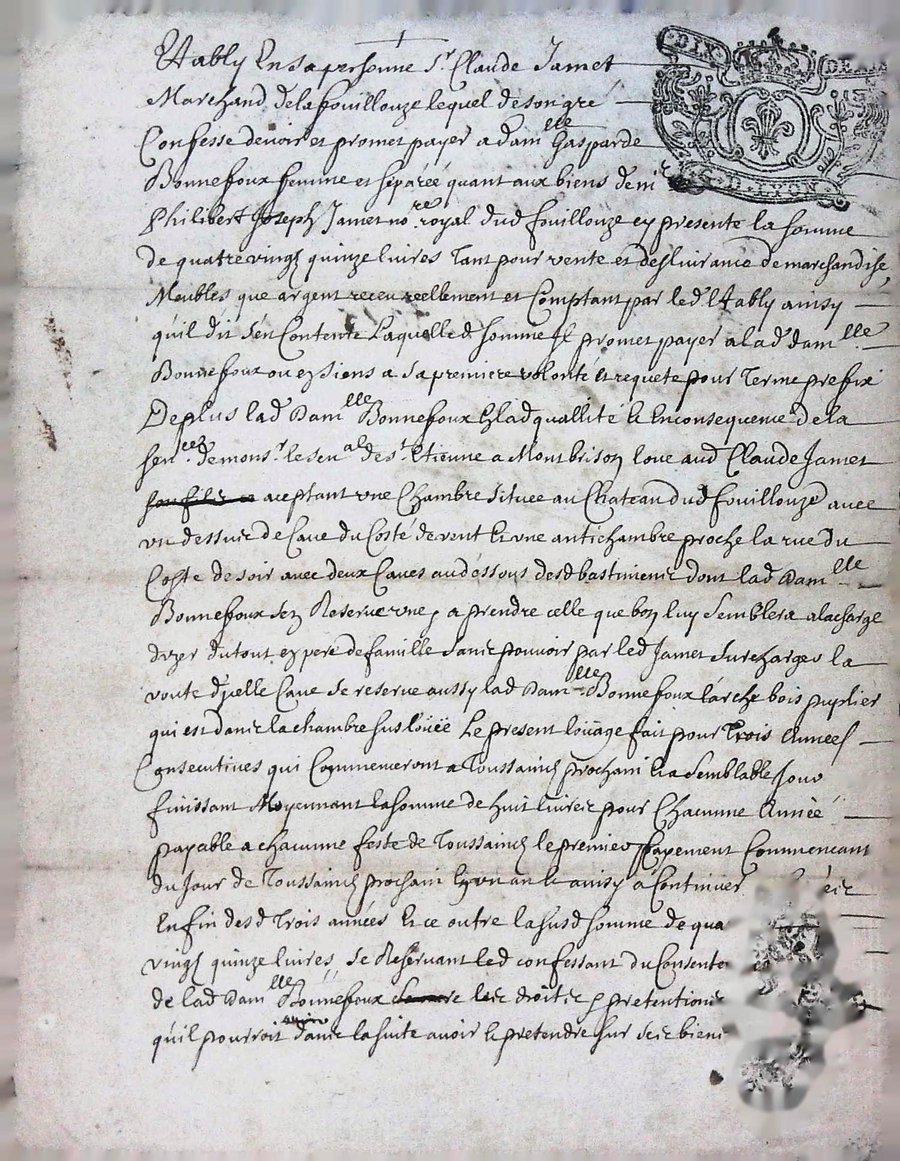 DIX DE
G. D. LYON
Estably En sa personne Sr. Claude Jamet
Marchand de la fouillouze lequel de son gré
Confesse devoir et promet payer a Damlle Gasparde
Bonnefoux femme et séparéé quant aux biens de mr
Philibert Joseph Jamet no.re royal dud fouillouze cy presente la somme
de quatre vingt quinze livres Tant pour vente et deslivrance de marchandise,
Meubles que argent receu reellement et Comptant par led. Estably ainsy
quil dit s'en Contente Laquelled somme Il promet payer a lad damlle
Bonnefoux ou ez siens a sa premiere volonté et requete pour Terme prefix
De plus lad Damlle Bonnefoux En lad quallité & En consequence de la
sen.ce de monsr. le senal de st. Etienne a Montbrison loue aud Claude Jamet
son fils aceptant une Chambre située au Chateau dud fouillouze avec
un dessus de Cave du Costé de vent & une antichambre proche la rue du
Coste de soir avec deux Caves audessous desd bastiments dont lad Damlle
Bonnefoux sen Reserve une, a prendre celle que bon luy semblera a la charge
duzer du tout en pere de famille sans pouvoir par led Jamet surcharger la
voute dicelle Cave se reserve aussy lad Damlle Bonnefoux larche bois puplier
qui est dans la chambre sus louëe Le present louage fait pour Trois Années
Consecutives qui Commenceront a Toussaincts prochain & a semblable Jour
finissant Moyennant la somme de huit livres pour Chacunne Année
payable a chacunne feste de Toussaincts le premier payement Commencant
du Jour de Toussaincts prochain En un an & ainsy a Continuer
Enfin desd Trois années & ce outre la susd somme de qua
vingt quinze livres, se Réservant led confessant du Consente
de lad Damlle Bonnefoux les droits & pretentions
quil pourroit dans la suite avoir & pretendre sur ses biens